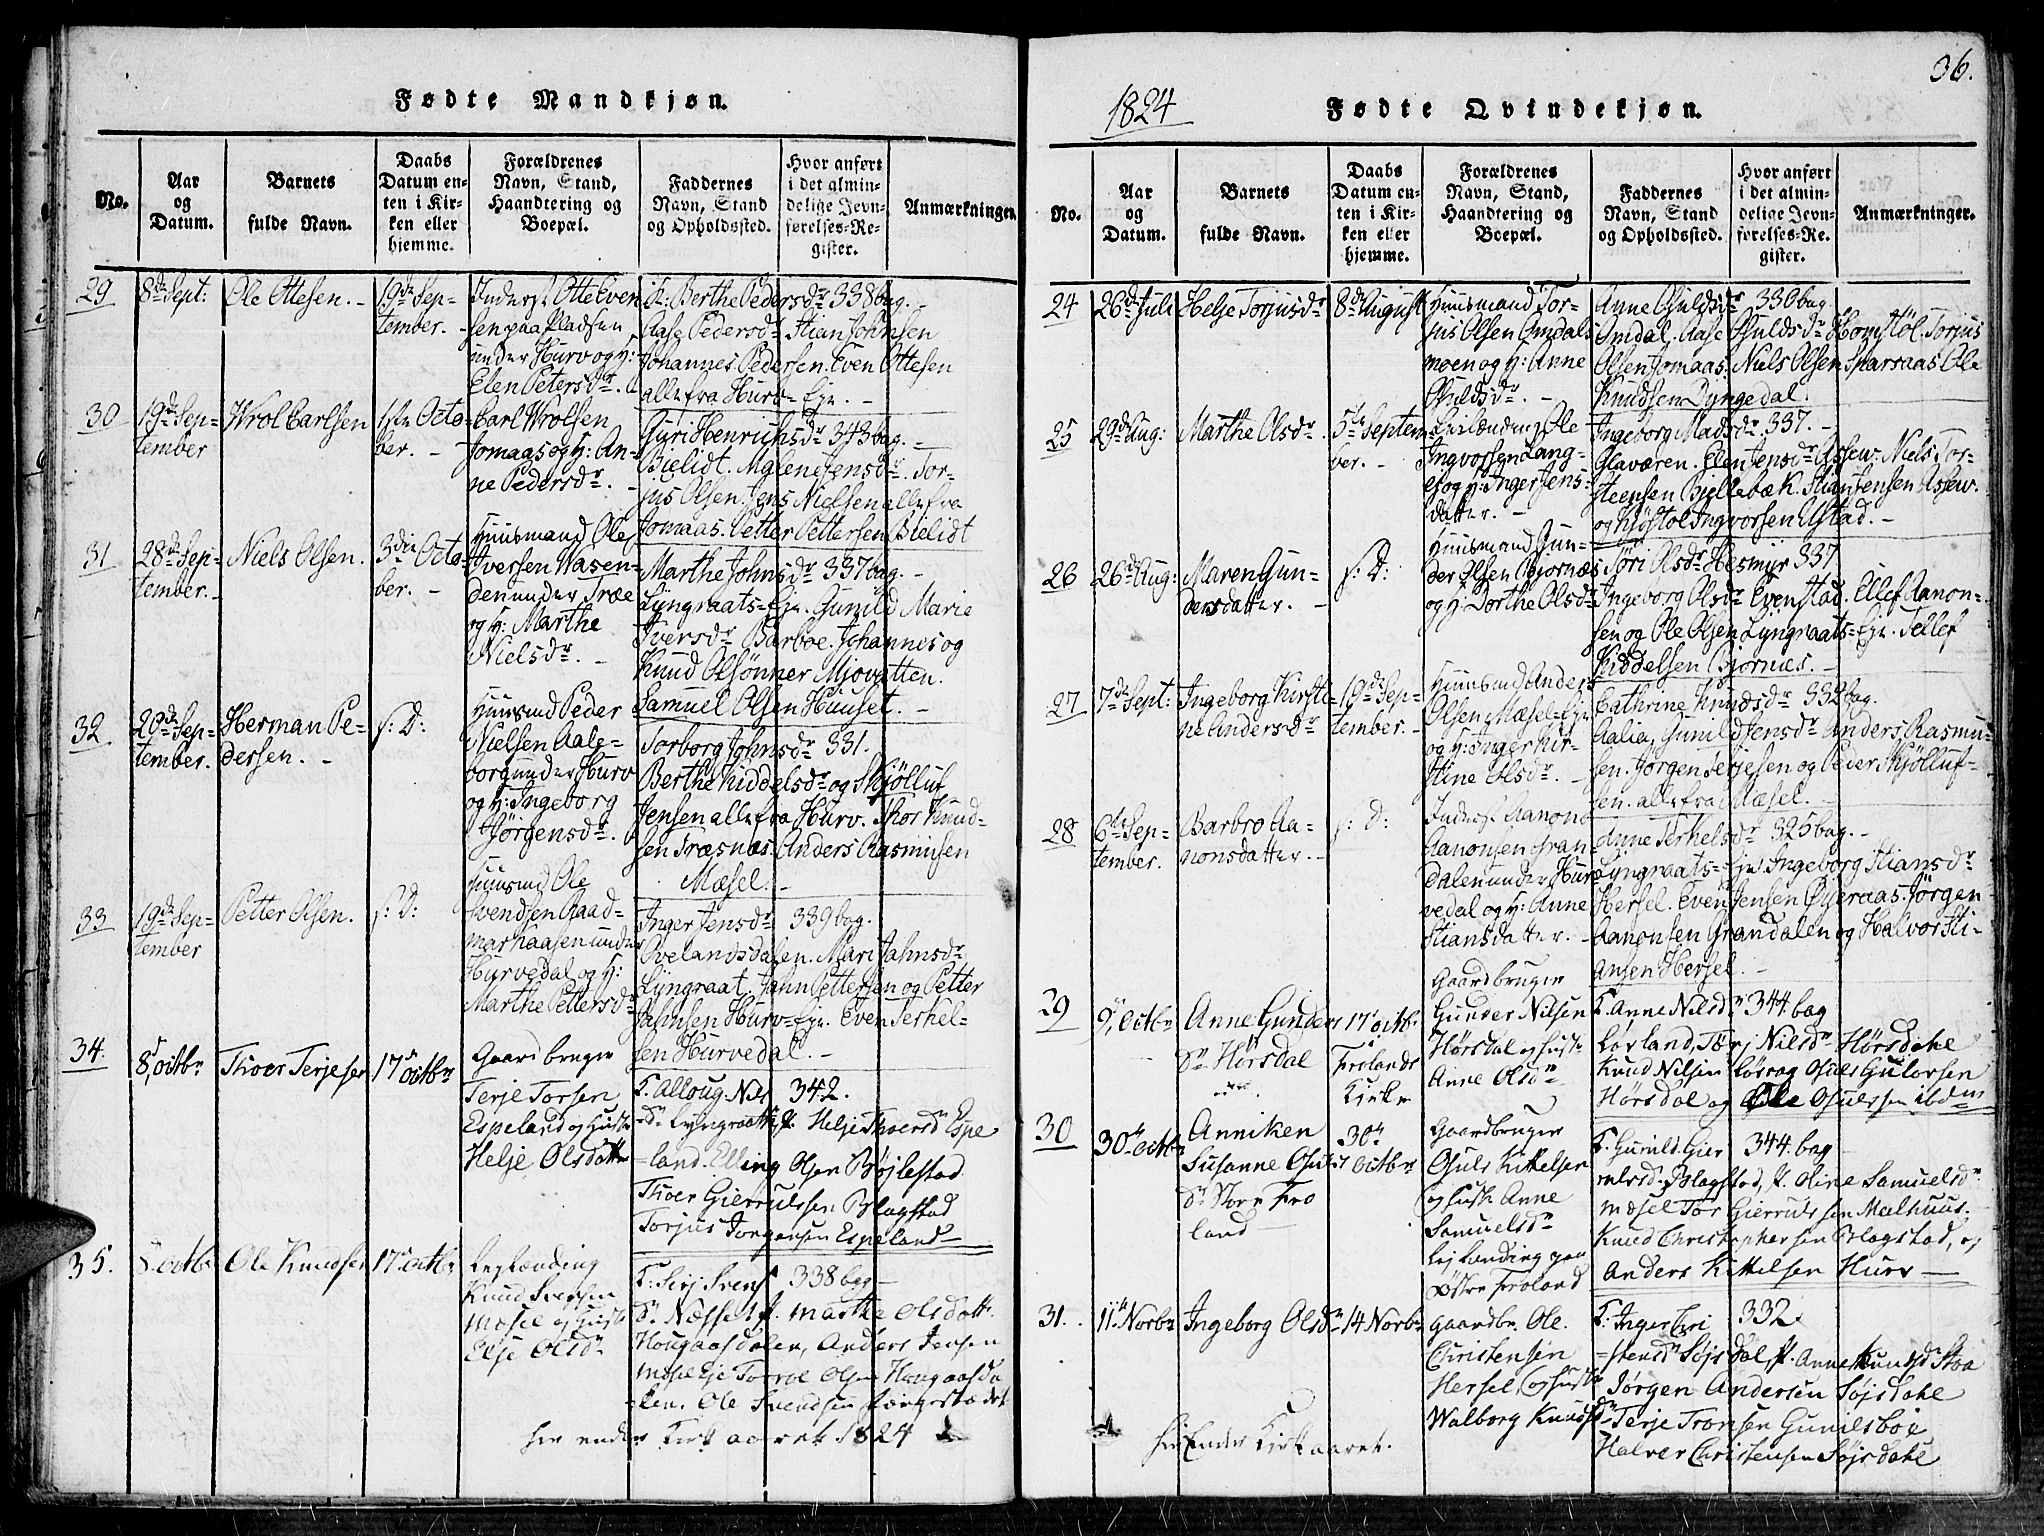 Fødte Mandkjøn.
No.
Aar
og
Datum.
Barnets
fulde Navn.
Daabs
Datum en-
ten i Kir-
ken eller
hjemme.
Forældrenes
Navn, Stand,
Haandtering og
Boepæl.
Faddernes
Navn, Stand
og Opholdssted.
Hvor anført
i det almin-
delige Jevn-
førelses-Re-
gister.
Anmærkninger.
29
8de Sept:
Ole Ottesen. -
19de Sep-
tember. -
Inderst Otte Even
sen paa Pladsen
under Hurv og H:
Elen Petersdr.
K: Berthe Pedersdr 338 bag. -
Aase Pedersdr Stian Johnsen
Johannes Pedersen. Even Ottesen
alle fra Hurv-Eje. -
30
19de Sep-
tember
Wrol Carlsen
1ste Octo-
ber. -
Carl Wrolsen
Jomaas og H: An-
ne Pedersdr. -
Guri Henrichsdr 343 bag. -
Bielidt. Malene Jensdr. Tor-
jus Olsen. Jens Nielsen alle fra
Jomaas. Petter Pettersen Bielidt
31
28de Sep-
tember. -
Niels Olsen.
3die Octo-
ber. -
Huusmand Ole
Iversen Wasen-
den under Træe
og H: Marthe
Nielsdr. -
Marthe Johnsdr 337 bag. -
Lyngraats-Eje. Gunild Marie
Iversdr Barboe. Johannes og
Knud Olsønner Mjovatten.
Samuel Olsen Huuset. -
32
20de Sep-
tember.
Herman Pe-
dersen. -
s: D:
Huusmd Peder
Nielsen Aale-
borg under Hurv
og H: Ingeborg
Jørgensdr.
Torborg Johnsdr 331.
Berthe Kiddelsdr og Skjølluf
Jensen alle fra Hurv. Thor Knud-
sen Træsnæs. Anders Rasmusen
Mæsel. -
33
19de Sep-
tember
Petter Olsen.
s: D:
Huusmd Ole
Svendsen Raad-
markaasen under
Hurvedal og H:
Marthe Pettersdr
Inger Jensdr 339 bag.
Ovelandsdalen. Mari Jahnsdr
Lyngraat. Jahn Pettersen og Petter
Jahnsen Hurv-Eje. Even Terkel-
sen Hurvedal. -
34.
8, octbr
Thoer Terjesen
17 octbr
Gaardbruger
Terje Torsen
Espeland og Hustr
Helje Olsdatt
F. Alloug Nils 342.
dr. Lyngraatt, P. Helje Thoersdr Espe
=land. Elling Olsen Bøjlestad
Thoer Gierrulssen Blagstad
Torjus Jorgensen Espeland
35.
8. octbr
Ole Knudsen
17 octbr
Leylænding
Knud Svensen
Mæsel og Hustr
Else Olsdr
F. Sirj Svens 338 bag -
dr Næssel P. Marthe Olsdatt
Hougaasdalen, Anders Jensen
Mæsel Eje Torvel Olsen Hougaasda
len. Ole Svendsen
her ender Kirkaaret 1824
36.
1824
Fødte Qvindekjøn.
No.
Aar
og
Datum.
Barnets
fulde Navn.
Daabs
Datum en-
ten i Kir-
ken eller
hjemme.
Forældrenes
Navn, Stand,
Haandtering og
Boepæl.
Faddernes
Navn, Stand
og Opholdssted.
Hvor anført
i det almin-
delige Jevn-
førelses-Re-
gister.
Anmærkninger.
24
26de Juli
Helje Torjusdr
8de August
Huusmand Tor-
jus Olsen Omdals
moen og H: Anne
Osuldsdr. -
Anne Osuldsdr 330 bag.
Omdal. Aase Osuldsdr Homstøl. Torjus
Olsen Jomaas. Niels Olsen Sparsaas Ole
Knudsen Dyngedal.
25
29de Aug:
Marthe Olsdr.
5te Septem-
ver. -
Leilænding Ole
Ingvorsen Lang-
els og H: Inger Jens-
datter. -
Ingeborg Madsdr. 337. -
Glaværen. Elen Jensdr Assew. Niels Tor-
steensen Bjellebæk. Stian Jensen Assew.
og Kjøstol Ingvorsen Elstad. -
26
26de Aug:
Maren Gun-
dersdatter. -
s: D:
Huusmand Gun-
der Olsen Bjornæs
og H: Dorthe Olsdr
Søri Olsdr Hesmyr 337
Ingeborg Olsdr Evenstad. Ellef Aanon-
sen og Ole Olsen Lyngraats-Eje. Tellef
Kiddelsen Bjornæs. -
27
7de Sept:
Ingeborg Kirsti-
ne Andersdr
19de Sep-
tember. -
Huusmd Anders
Olsen Mæsel-Eje
og H: Inger Kir-
stine Olsdr. -
Cathrine Knudsdr 332 bag.
Aalia, Gunild Jensdr Anders Rasmu-
sen. Jørgen Terjesen og Peder Skjølluf-
sen. alle fra Mæsel. -
28
6te Sep-
tember.
Barbro Aa-
nonsdatter. -
s: D:
Inderst Aanon
Aanonsen Gran-
dalen under Hur-
vedal og H: Anne
Stiansdatter. -
Anne Terkelsdr 325 bag. -
Lyngraats-Eje Ingeborg Stiansdr
Hersel. Even Jensen Øyseraas. Jörgen
Aanonsen Grandalen og Halvor Sti-
ansen Hersel. -
29
9, octbr
Anne Gunders
dr Hörsdal
17 octbr
Frolands
Kirke
Gaardbruger
Gunder Nilsen
Hörsdal og Hustr
Anne Olsdr
F. Anne Nilsdr 344 bag
Lovland, Torj Nilsdr Hörsdahl
Knud Nilsen Løvrag Osuls Gulovsen
Hörsdal og Ole Osulssen ibdm
30
30 octbr
Anniken
Susanne Osuls
dr Store Fro
land
30
octbr
Gaardbruger
Osuls Kittelsen
og Hustr Anne
Samuelsdr
Lejlænding paa
Østre Froland
F. Gunild Gier 344. bag
rulsdr Blagstad, P. Oline Samuelsdr
Mæsel Tor Gierrulssen Mælhuus.
Knud Christophersen Blagstad, og
Anders Kittelsen Hurv
31.
11 Novbr
Ingeborg Olsdr
14 Novbr
Gaardbr. Ole
Christensen
Hersel, og Hustr
Walborg Knudsdr
F. Inger Cri 332
=stensdr Søjsdal, P. Anne Knudsdr Stoa
Jørgen Andersen Søjsdahl
Terje Tronsen Gunilsboe
Halver Christensen Søjsdahl
her Ender Kirkaaret.